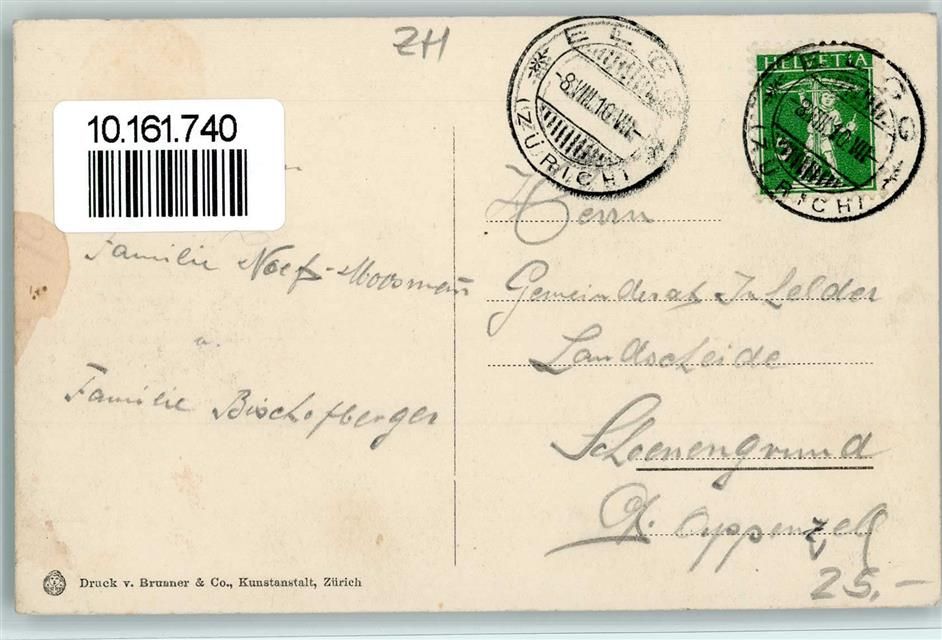 ZH
10.161.740
ELGG
8.VIII.10.VII
(ZÜRICH)
HELVETIA
ELGG
8.VIII.10.VII
(ZÜRICH)
Familie Naef-Moosmann
u.
Familie Bischofberger
Herrn
Gemeinderat Inselder
Landscheide
Schoenengrund
Kt. Appenzell
25.-
Druck v. Brunner & Co., Kunstanstalt, Zürich